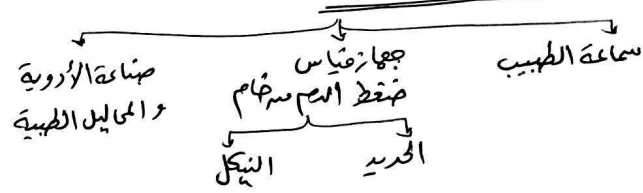 سماعة الطبيب
جهاز قياس
ضغط الدم من خام
صناعة الأدوية
و المحاليل الطبية
الحديد
النيكل